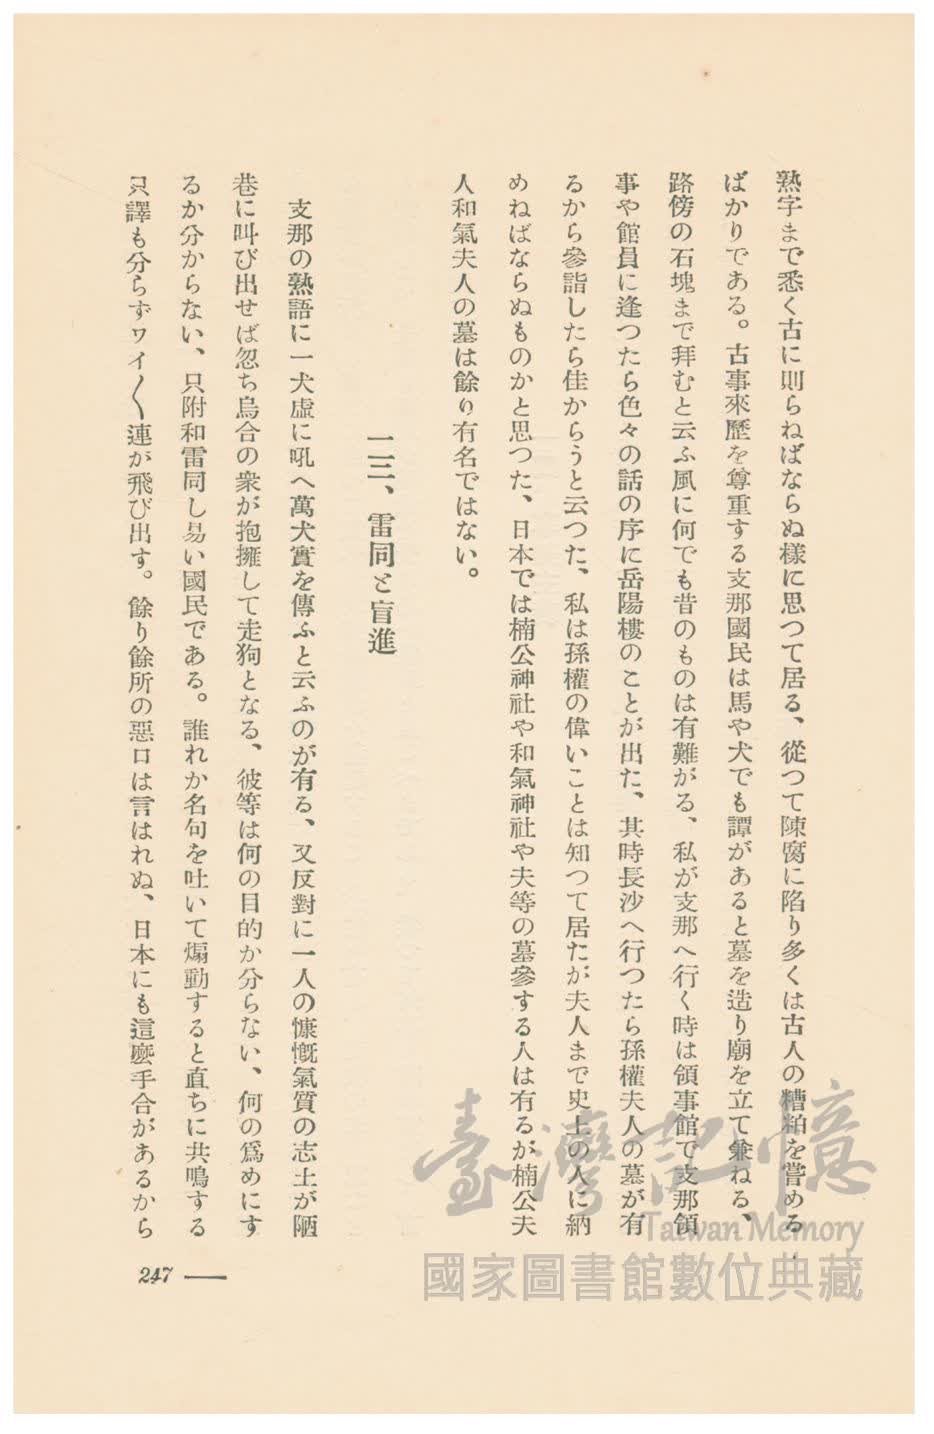 熟字まで悉く古に則らねばならぬ樣に思つて居る、從つて陳腐に陷り多くは古人の糟粕を嘗める
ばかりである。古事來歷を尊重する支那國民は馬や犬でも譚があると墓を造り廟を立て兼ねる、
路傍の石塊まで拜むと云ふ風に何でも昔のものは有難がる、私が支那へ行く時は領事館で支那領
事や館員に逢つたら色々の話の序に岳陽樓のことが出た、其時長沙へ行つたら孫權夫人の墓が有
るから參詣したら佳からうと云つた、私は孫權の偉いことは知つて居たが夫人まで史上の人に納
めねばならぬものかと思つた、日本では楠公神社や和氣神社や夫等の墓參する人は有るが楠公夫
人和氣夫人の墓は餘り有名ではない。
一三、雷同と盲進
支那の熟語に一犬虛に吼へ萬犬實を傳ふと云ふのが有る、又反對に一人の慷慨氣質の志士が陋
巷に叫び出せば忽ち烏合の衆が抱擁して走狗となる、彼等は何の目的か分らない、何の爲めにす
るか分からない、只附和雷同し易い國民である。誰れか名句を吐いて煽動すると直ちに共鳴する
只譯も分らずワイ〱連が飛び出す。餘り餘所の惡口は言はれぬ、日本にも這麼手合があるから
247
臺灣記憶
Taiwan Memory
國家圖書館數位典藏